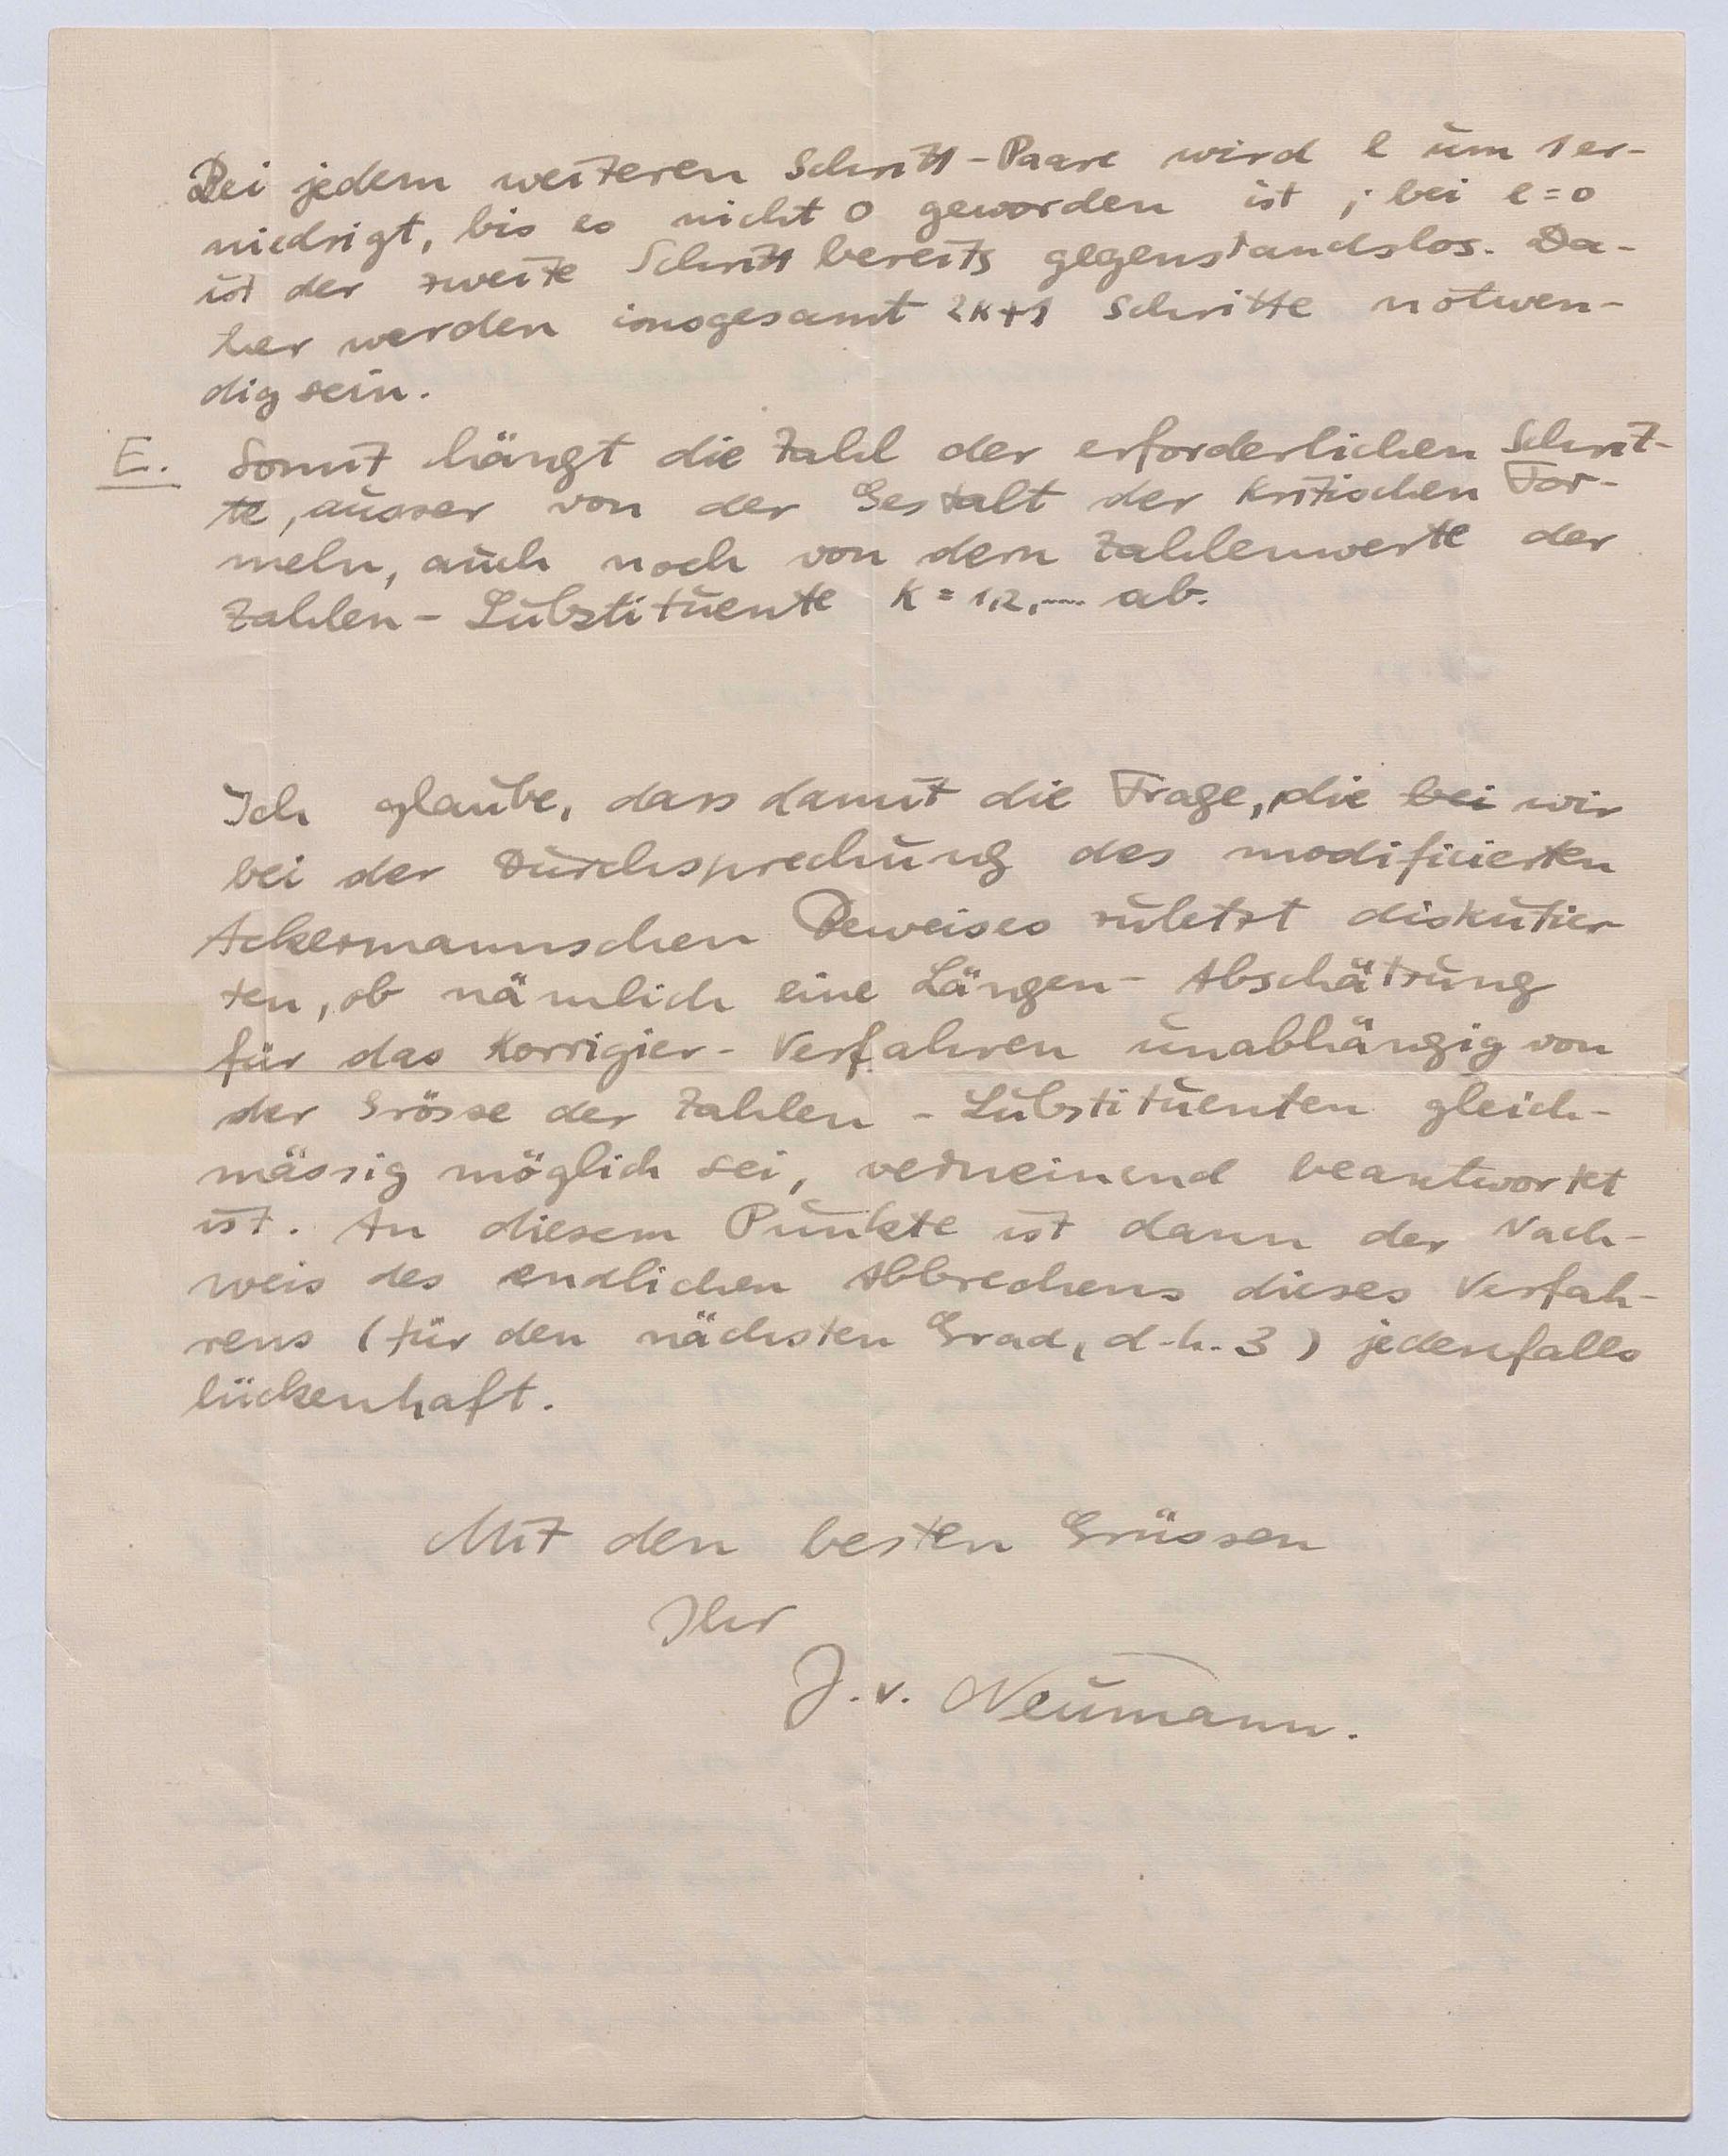 Bei jedem weiteren Schritt-Paare wird l um 1 er-
niedrigt, bis es nicht 0 geworden ist; bei l=0
ist der zweite Schritt bereits gegenstandslos. Da-
her werden insgesamt 2k+1 Schritte notwen-
dig sein.
E. Somit hängt die Zahl der erforderlichen Schrit-
te, ausser von der Gestalt der kritischen For-
meln, auch noch von dem Zahlenwerte der
Zahlen-Substituente k=1,2,.... ab.
Ich glaube, dass damit die Frage, die bei wir
bei der Durchsprechung des modificierten
Ackermannschen Beweises zuletzt diskutier
ten, ob nämlich eine Längen-Abschätzung
für das Korrigier-Verfahren unabhängig von
der Grösse der Zahlen-Substituenten gleich-
mässig möglich sei, verneinend beantwortet
ist. An diesem Punkte ist dann der Nach-
weis des endlichen Abbrechens dieses Verfah-
rens (für den nächsten Grad, d.h. 3) jedenfalls
lückenhaft.
Mit den besten Grüssen
Ihr
J. v. Neumann.